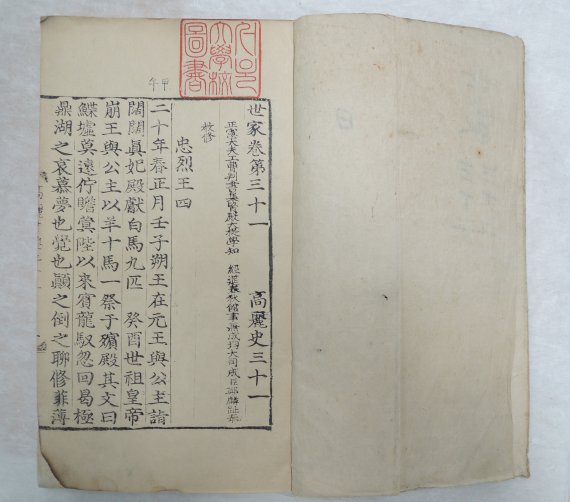 大學校
圖書
甲午
世家卷第三十一 高麗史三十一
正憲大夫工曹判書集賢殿大提學知 經筵春秋館事兼成均大司成臣鄭麟趾奉
教修
忠烈王四
二十年春正月壬子朔王在元王與公主詣
闊闊真妃殿獻白馬九匹 癸酉世祖皇帝
崩王與公主以羊十馬一祭于殯殿其文曰
鰈墟奠遠佇瞻蓂陛以來賓龍馭忽回曷極
鼎湖之哀慕夢也覺也顚之倒之聊修菲薄